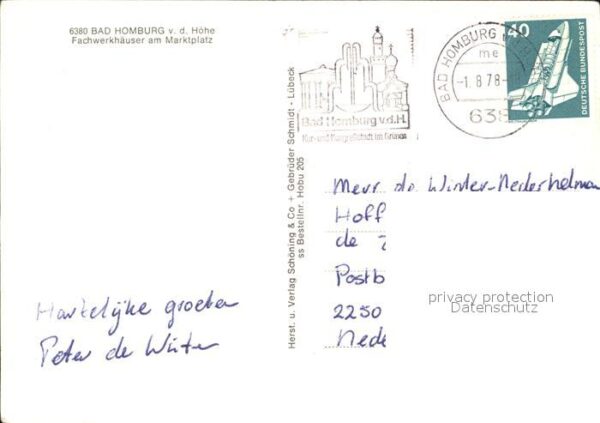 6380 BAD HOMBURG v. d. Höhe
Fachwerkhäuser am Marktplatz
Bad Homburg v.d.H.
Kur- und Kongreßstadt im Grünen
BAD HOMBURG
-1.8.78-
638
40
DEUTSCHE BUNDESPOST
Herst. u. Verlag Schöning & Co + Gebrüder Schmidt - Lübeck
ss Bestellnr. Hobu 205
Mevr. de Winter-Nederhelman
Hoff
de
Postb
2250
Nede
privacy protection
Datenschutz
Hartelijke groeten
Peter de Winter